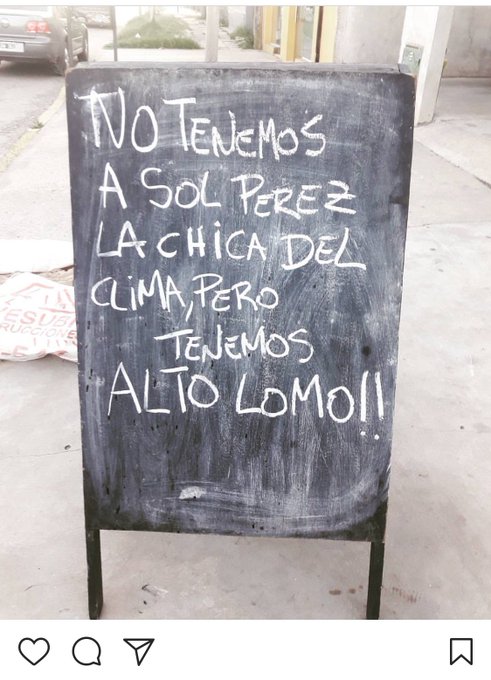 NO TENEMOS
A SOL PEREZ
LA CHICA DEL
CLIMA, PERO
TENEMOS
ALTO LOMO!!